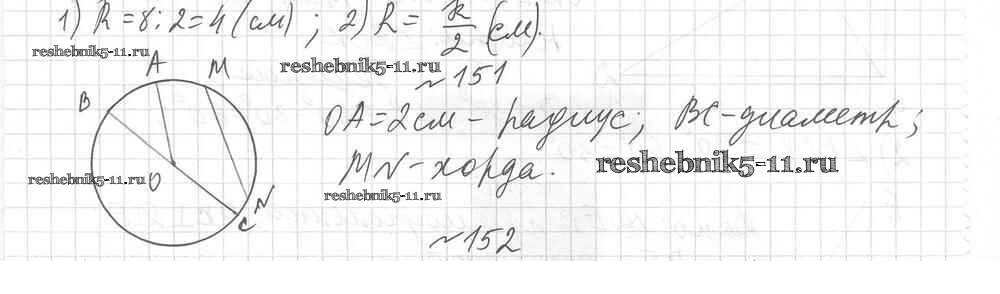 1) R = 8 : 2 = 4 (см) ; 2) R = k/2 (см).
reshebnik5-11.ru
reshebnik5-11.ru
№ 151
A
M
B
OA = 2 см - радиус; BC - диаметр;
MN - хорда.
reshebnik5-11.ru
reshebnik5-11.ru
O
reshebnik5-11.ru
N
C
№ 152